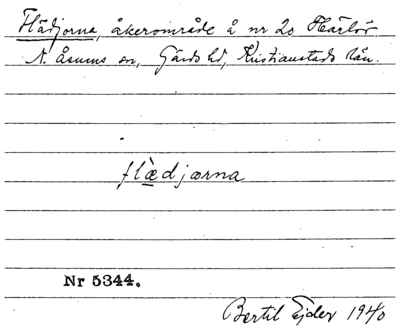 Flädjorna, åkerområde å nr 20 Härlöv
N. Åsums sn, Gärds hd, Kristianstads län.
flædjorna
Nr 5344.
Bertil Ejder 1940